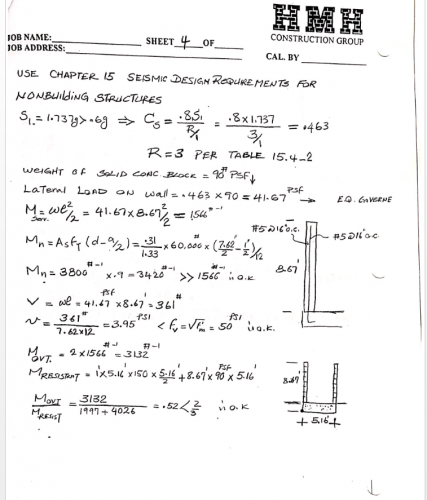 HMH
JOB NAME: SHEET 4 OF
CONSTRUCTION GROUP
JOB ADDRESS:
CAL. BY
USE CHAPTER 15 SEISMIC DESIGN REQUIREMENTS FOR
NONBUILDING STRUCTURES
S₁ = 1.737g > .6g ⇒ Cs = .8S₁ / R/I = .8 x 1.737 / 3/1 = .463
R = 3 PER TABLE 15.4-2
WEIGHT OF SOLID CONC. BLOCK = 90 PSF↓
LATERAL LOAD ON WALL = .463 x 90 = 41.67 PSF → EQ. GOVERNE
M = wl²/2 = 41.67 x 8.67²/2 = 1566 #-1
#5@16"O.C. #5@16"O.C.
Mn = AsFy (d - a/2) = .31/1.33 x 60,000 x (7.62/2 - 1/2)/12
8.67'
Mn = 3800 #-1 x .9 = 3420 #-1 >> 1566 #-1 ∴ O.K
V = wl = 41.67 PSF x 8.67' = 361#
v = 361# / 7.62 x 12 = 3.95 PSI < fv = √f'm = 50 PSI ∴ O.K.
M OVT. = 2 x 1566 #-1 = 3132 #-1
M RESISTANT = 1' x 5.16' x 150 x 5.16/2 + 8.67' x 90 PSF x 5.16'
8.67'
M OVT / M RESIST = 3132 / 1997 + 4026 = .52 < 2/3 ∴ O.K
5.16'